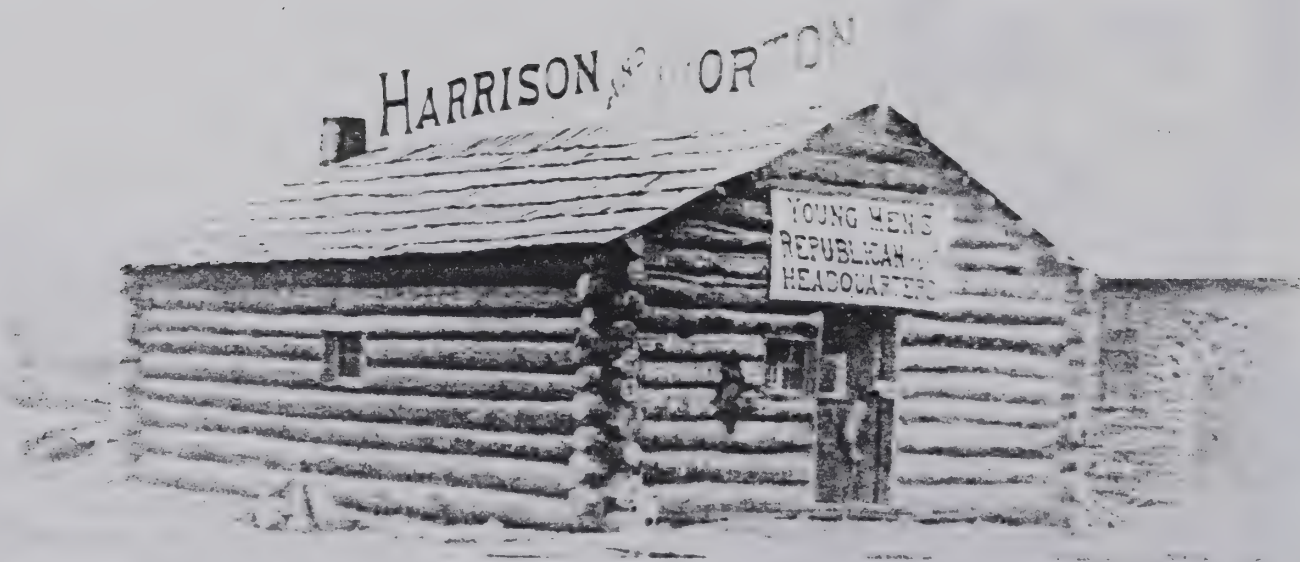 HARRISON AND MORTON
YOUNG MEN'S
REPUBLICAN
HEADQUARTERS